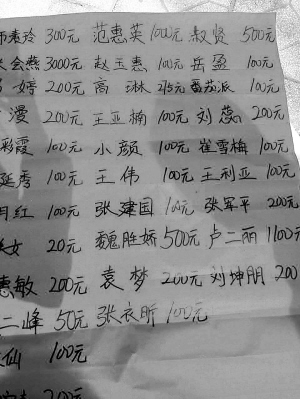 素玲 300元 范惠英 1000元 敖贤 500元
会燕 3000元 赵玉惠 100元 岳盈 100元
婷 200元 高琳 215元 番茄派 100元
漫 200元 王亚楠 100元 刘蕊 200元
彩霞 100元 小颜 100元 崔雪梅 100元
延秀 100元 王伟 100元 王利亚 100元
月红 100元 张建国 100元 张军平 200元
女 20元 魏胜娇 500元 卢二丽 1100元
惠敏 200元 袁梦 200元 刘坤朋 200
二峰 50元 张衣昕 100元
仙 100元
200元